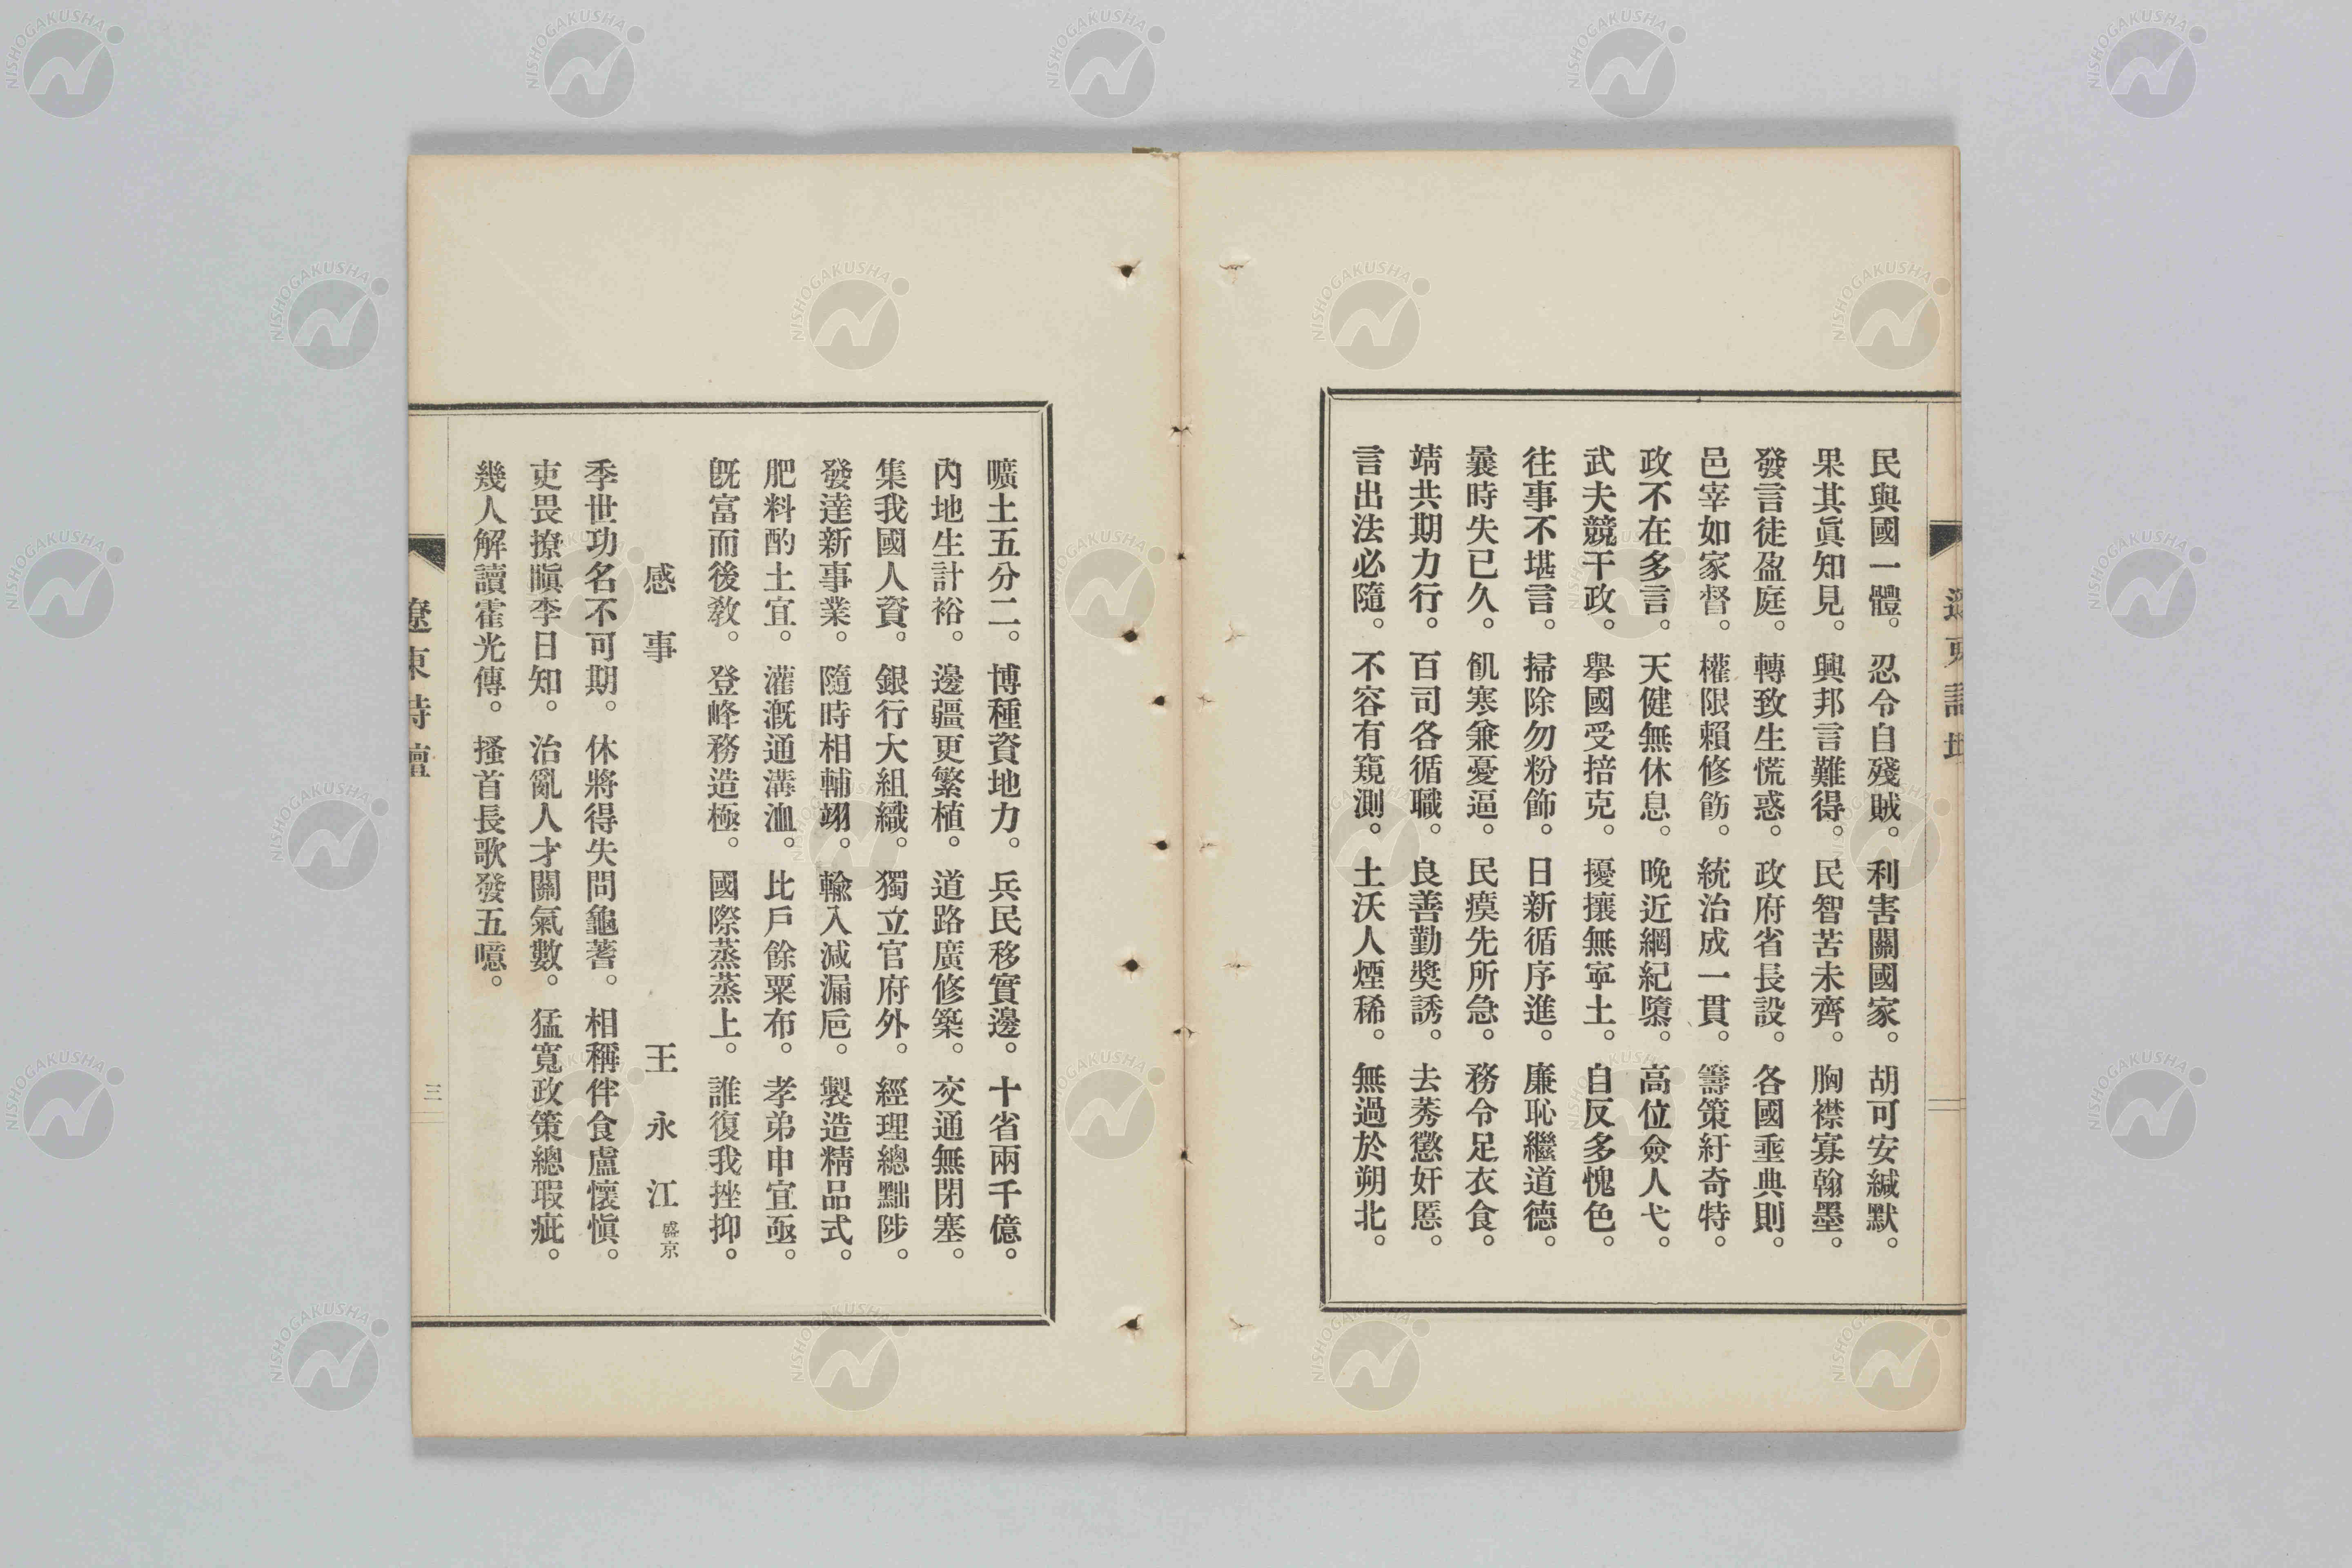 民與國一體。忍令自殘賊。利害關國家。胡可安緘默。
果其眞知見。興邦言難得。民智苦未齊。胸襟寡翰墨。
發言徒盈庭。轉致生慌惑。政府省長設。各國垂典則。
邑宰如家督。權限賴修飭。統治成一貫。籌策紆奇特。
政不在多言。天健無休息。晩近綱紀隳。高位僉人弋。
武夫競干政。擧國受掊克。擾攘無寧土。自反多愧色。
往事不堪言。掃除勿粉飾。日新循序進。廉恥繼道德。
曩時失已久。飢寒兼憂逼。民瘼先所急。務令足衣食。
靖共期力行。百司各循職。良善勤獎誘。去莠懲奸慝。
言出法必隨。不容有窺測。土沃人煙稀。無過於朔北。
曠土五分二。博種資地力。兵民移實邊。十省兩千億。
內地生計裕。邊疆更繁植。道路廣修築。交通無閉塞。
集我國人資。銀行大組織。獨立官府外。經理總黜陟。
發達新事業。隨時相輔翊。輸入減漏巵。製造精品式。
肥料酌土宜。灌漑通溝洫。比戶餘粟布。孝弟申宜亟。
旣富而後敎。登峰務造極。國際蒸蒸上。誰復我挫抑。
感事　王永江 盛京
季世功名不可期。休將得失問龜蓍。相稱伴食盧懷愼。
吏畏撩瞋李日知。治亂人才關氣數。猛寬政策總瑕疵。
幾人解讀霍光傳。搔首長歌發五噫。
遼東詩壇
三
NISHOGAKUSHA